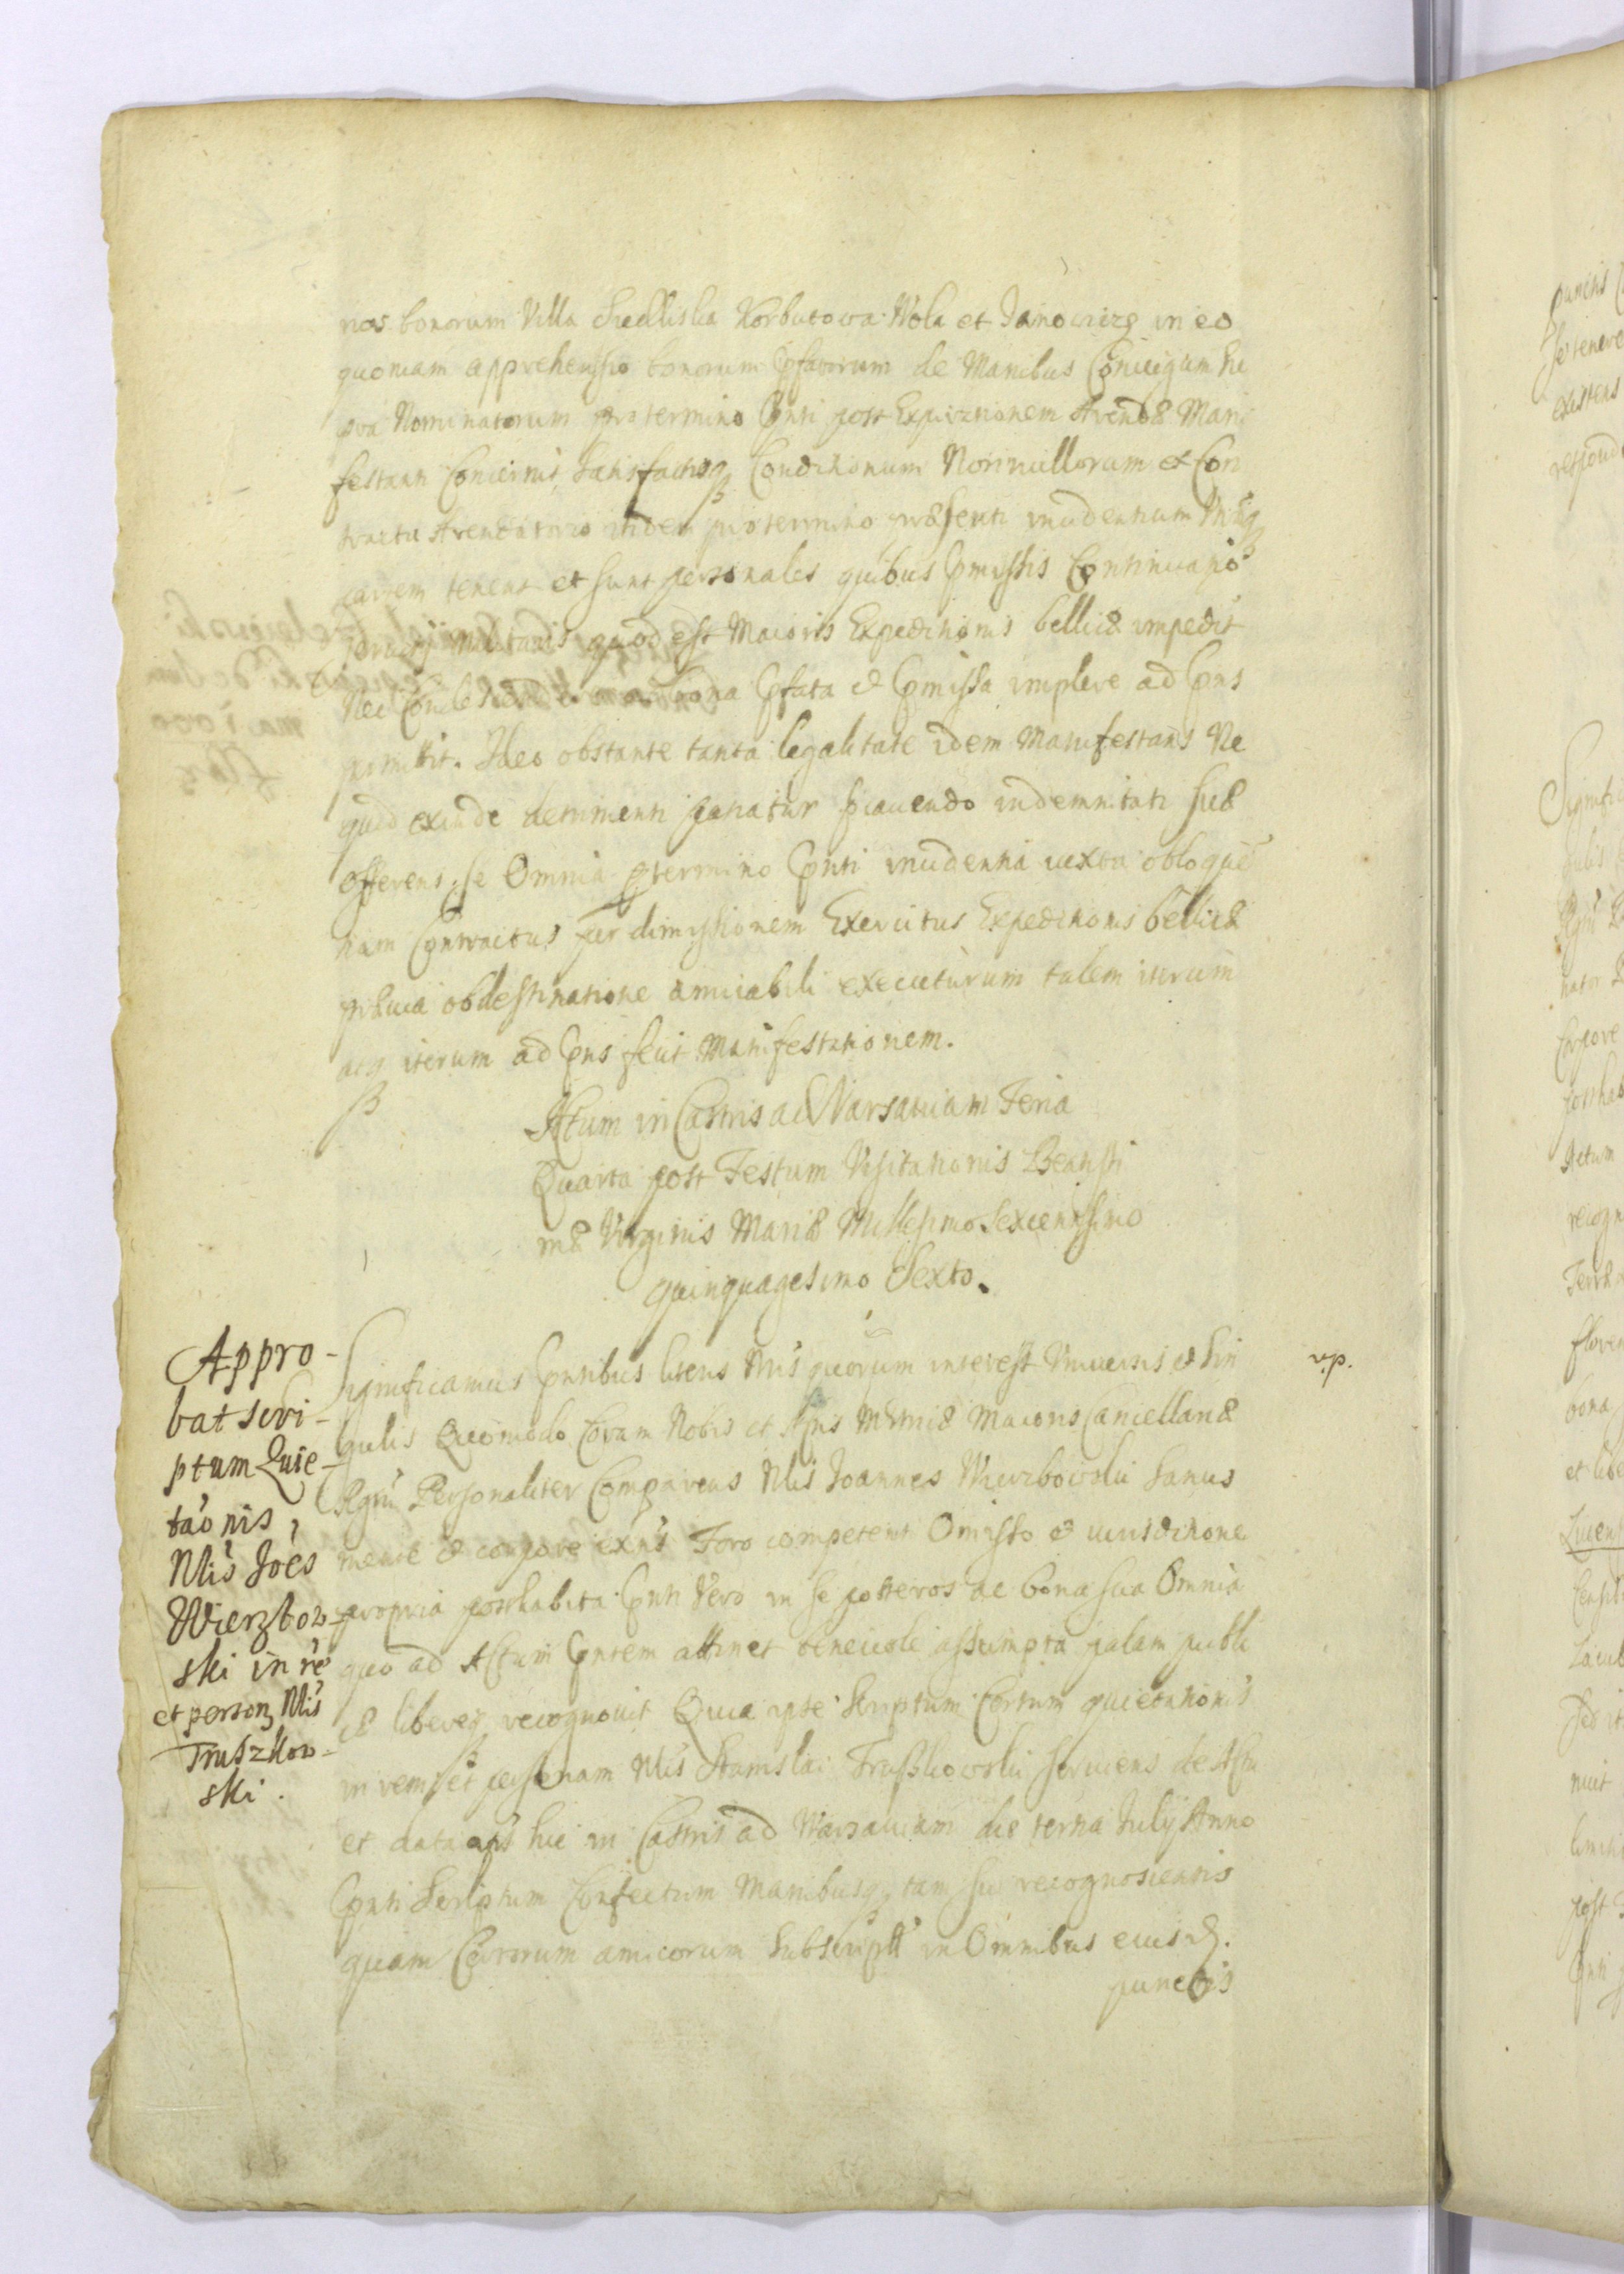 nos bonorum Villa Siedliska Korbutowa Wola et Janowicze in eo
quoniam apprehensio bonorum Pfatorum de Manibus Coniugum Su
pra Nominatorum pro termino Pnti post Expirationem Arendæ Mani
festanti Concernit, Satisfactioq Conditionum Nonnullorum ex Con
tractu Arendatorio itidem pro termino præsenti incidentium
autem tenent et sunt personales quibus Pmissis Continuatio
seruitij militaris quod est Maioris Expeditionis bellicæ impedit
Nec bona Pfata & Pmissa implere ad Pns
permittit. Ideo obstante tanta legalitate idem Manifestans Ne
quid exinde detrimenti patiatur Pcauendo indemnitati suæ
offerens se Omnia p termino Pnti incidentia iuxta obloque
tiam Contractus per dimissionem Exercitus Expeditionis bellicæ
præuia obdestinatione amicabili executurum talem iterum
atq iterum ad Pns fecit Manifestationem.
Actum in Castris ad Varsauiam Feria
Quarta post Festum Visitationis Beatissi
mæ Virginis Mariæ Millesimo Sexcentesimo
quinquagesimo Sexto.
Appro-
bat scri-
ptum Quie-
tao̅nis,
Nlis Joes
Wierzbow-
ski in re
et person Nlis
Truszkow-
ski.
Significamus Pntibus literis Nris quorum interest Vniuersis & Sin
gulis Quomodo Coram Nobis et Actis Mtricæ Maioris Cancellariæ
Rgni Personaliter Comparens Nlis Joannes Wierzbowski Sanus
mente & corpore exns Foro competenti Omisso & iurisditione
propria posthabita Pnti Vero in se posteros ac bona sua Omnia
quo ad Actum Pntem attinet beneuole assumpta palam publi
cæ libereq recognouit Quia ipse Scriptum Certum quietationis
in rem et personam Nlis Stanislai Truszkowski seruiens de Actu
et data ipius hic in Castris ad Varsauiam die tertia Julij Anno
Pnti Scriptum Confectum Manibusq tam sui recognoscentis
quam Certorum amicorum Subscript in Omnibus eiusd.
punctis
v.p.